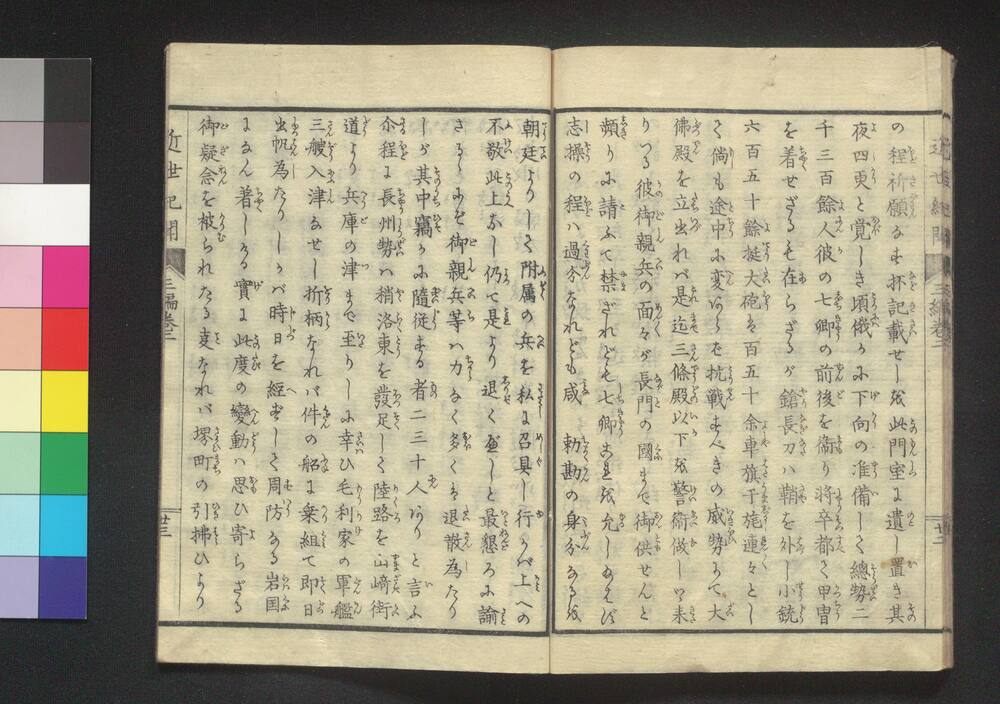 の程祈願なす抔記載せしを此門室に遺し置き其
夜四更と覚しき頃俄かに下向の准備して總勢二
千三百餘人彼の七卿の前後を衞り将卒都て甲冑
を着せざるも在らざるが鎗長刀ハ鞘を外し小銃
六百五十餘挺大砲を百五十余車旗于旄連々とし
て倘も途中に変あらを抗戦すべきの威勢にて大
佛殿を立出れバ是迄三條殿以下を警衞做し来
りつる彼御親兵の面々が長門の國まで御供せんと
頻りに請ふて禁ざれども七卿これを允しなえバ
志操の程ハ過分なれども咸 勅勘の身分なるを
近世紀聞 三編巻三 廿二
朝廷よりして附属の兵を私に召具し行かバ上への
不敬此上なし仍て是より退く可しと最懇ろに諭
さるゝにぞ御親兵等ハ力なく多くは退散為たり
しが其中竊かに隨従する者二三十人ありと言ふ
尒程に長州勢ハ稍洛東を發足して陸路を山﨑街
道より兵庫の津まで至りしに幸ひ毛利家の軍艦
三艘入津なせし折柄なれバ件の船に乗組て即日
出帆為たりしかバ時日を經ずして周防なる岩国
になん着しける實に此度の變動ハ思ひ寄らざる
御疑念を被られたる支なれバ堺町の引拂ひより
近世紀聞 三編巻三 廿三